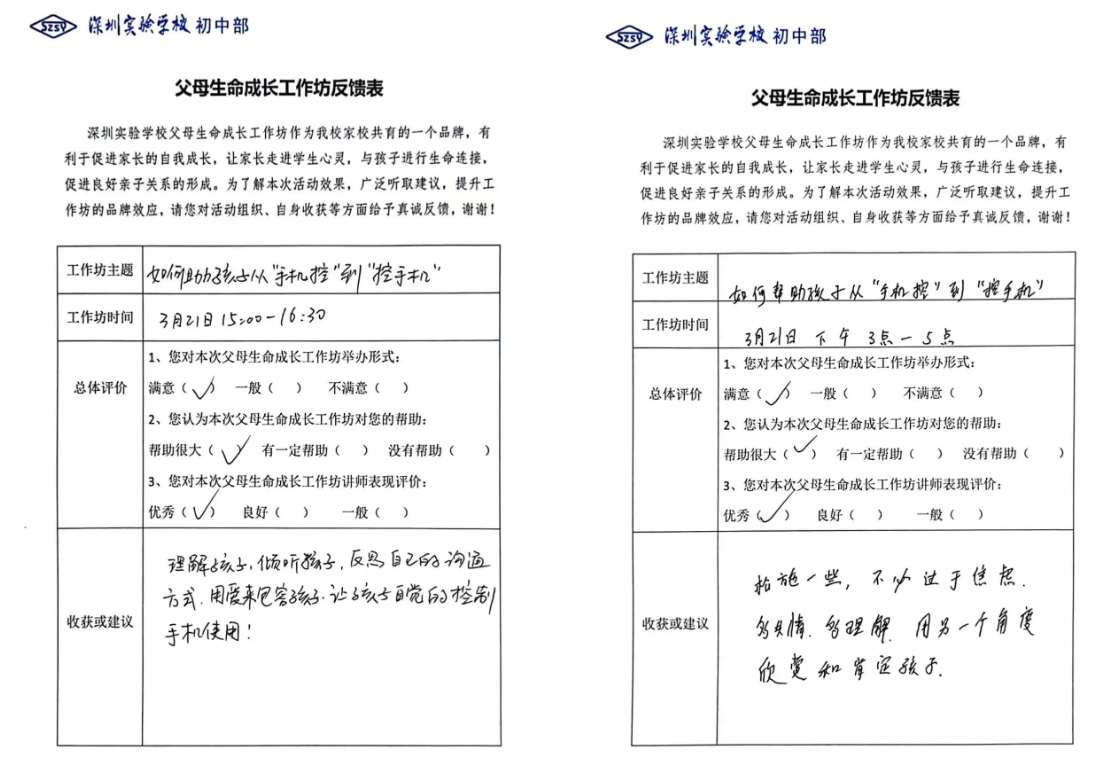 SZSY 深圳实验学校 初中部
父母生命成长工作坊反馈表
深圳实验学校父母生命成长工作坊作为我校家校共育的一个品牌，有
利于促进家长的自我成长，让家长走进学生心灵，与孩子进行生命连接，
促进良好亲子关系的形成。为了解本次活动效果，广泛听取建议，提升工
作坊的品牌效应，请您对活动组织、自身收获等方面给予真诚反馈，谢谢！
工作坊主题 如何助力孩子从"手机控"到"控手机"
工作坊时间 3月21日 15:00-16:30
总体评价
1、您对本次父母生命成长工作坊举办形式：
满意（✓） 一般（ ） 不满意（ ）
2、您认为本次父母生命成长工作坊对您的帮助：
帮助很大（✓） 有一定帮助（ ） 没有帮助（ ）
3、您对本次父母生命成长工作坊讲师表现评价：
优秀（✓） 良好（ ） 一般（ ）
收获或建议
理解孩子，倾听孩子，反思自己的沟通
方式．用爱来包容孩子．让孩子自觉的控制
手机使用！
SZSY 深圳实验学校 初中部
父母生命成长工作坊反馈表
深圳实验学校父母生命成长工作坊作为我校家校共育的一个品牌，有
利于促进家长的自我成长，让家长走进学生心灵，与孩子进行生命连接，
促进良好亲子关系的形成。为了解本次活动效果，广泛听取建议，提升工
作坊的品牌效应，请您对活动组织、自身收获等方面给予真诚反馈，谢谢！
工作坊主题 如何帮助孩子从"手机控"到"控手机"
工作坊时间 3月21日 下午 3点—5点
总体评价
1、您对本次父母生命成长工作坊举办形式：
满意（✓） 一般（ ） 不满意（ ）
2、您认为本次父母生命成长工作坊对您的帮助：
帮助很大（✓） 有一定帮助（ ） 没有帮助（ ）
3、您对本次父母生命成长工作坊讲师表现评价：
优秀（✓） 良好（ ） 一般（ ）
收获或建议
一些，不必过于焦虑．
多共情．多理解．用另一个角度
欣赏和肯定孩子．